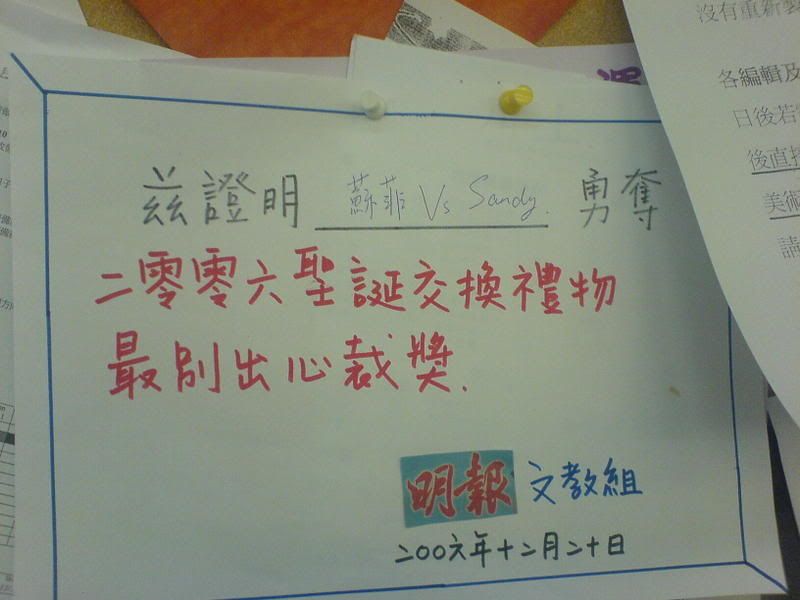 茲證明 蘇菲 Vs Sandy. 勇奪
二零零六聖誕交換禮物
最別出心裁獎.
明報 文教組
二00六年十二月二十日
沒有重新
各編輯及
日後若
後直接
美術
請